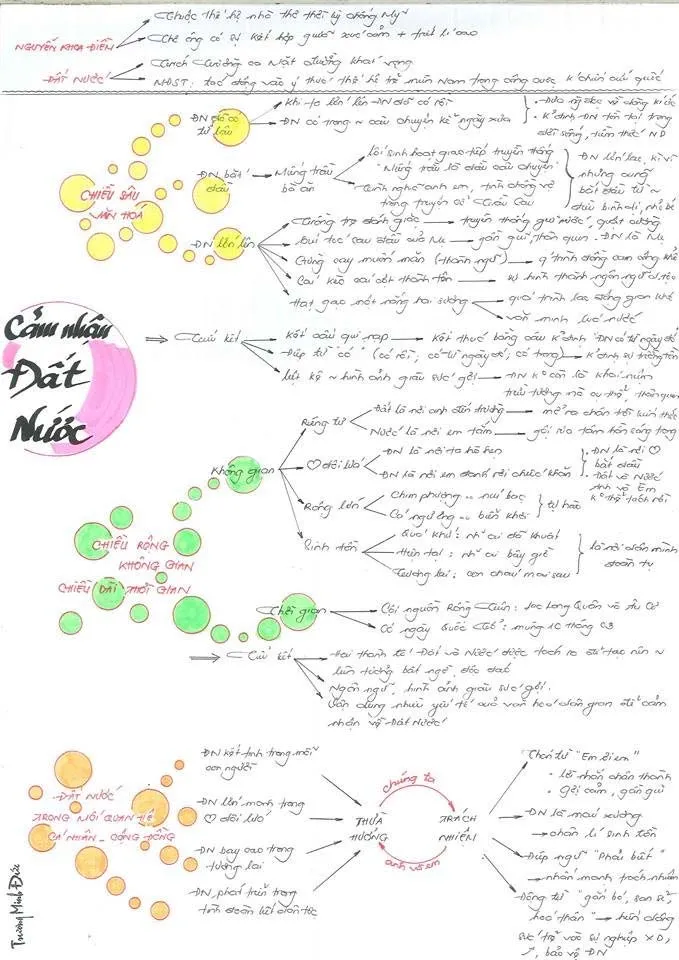 NGUYỄN KHOA ĐIỀM
Thuộc thế hệ nhà thơ thời kỳ chống Mỹ
Thơ ông có sự kết hợp giữa xúc cảm + triết lí
ĐẤT NƯỚC
Trích Trường ca Mặt đường khát vọng
MĐST: tác động vào ý thức thế hệ trẻ miền Nam trong công cuộc k'chiến cứu quốc
CHIỀU SÂU
VĂN HOÁ
ĐN đã có
từ lâu
Khi ta lớn lên ĐN đã có rồi
ĐN có trong ~ câu chuyện kể ngày xưa
ĐN bắt
đầu
Miếng trầu
bà ăn
Lối sinh hoạt giao tiếp truyền thống
"Miếng trầu là đầu câu chuyện"
Tình nghĩa anh em, tình chồng vợ
trong truyện cổ Trầu Cau
ĐN lớn lên
Trồng tre đánh giặc → truyền thống giữ nước, quật cường
Búi tóc sau đầu của Mẹ → gần gũi, thân quen. ĐN là Mẹ
Gừng cay muối mặn (thành ngữ)
Cái kèo cái cột thành tên → sự hình thành ngôn ngữ d.tộc
Hạt gạo một nắng hai sương
quá trình lao động gian khổ
văn minh lúa nước
Cảm nhận
Đất
Nước
⇒ Tiểu kết
Kết cấu qui nạp → Kết thúc bằng câu k'định "ĐN có từ ngày đó"
Điệp từ "có" (có rồi; có từ ngày đó; có trong) → k'định sự trường tồn
Liệt kê ~ hình ảnh giàu sức gợi → ĐN k° còn là khái niệm
trừu tượng mà cụ thể, thân quen
CHIỀU RỘNG
KHÔNG GIAN
CHIỀU DÀI THỜI GIAN
Không gian
Riêng tư
Đất là nơi anh đến trường → mở ra chân trời kiến thức
Nước là nơi em tắm → gợi lên tâm hồn trong sáng
♡ đôi lứa
ĐN là nơi ta hò hẹn
ĐN là nơi em đánh rơi chiếc khăn
ĐN là nơi ♡
bắt đầu
Đất và Nước
Anh và Em
k° thể tách rời
Rộng lớn
Chim phượng .. núi bạc
Cá ngư ông .. biển khơi
tự hào
Sinh tồn
Quá khứ: những ai đã khuất
Hiện tại: những ai bây giờ
Tương lai: con cháu mai sau
là nơi dân mình
đoàn tụ
Thời gian
Cội nguồn Rồng Tiên: Lạc Long Quân và Âu Cơ
Có ngày Quốc Tổ: mùng 10 tháng 03
⇒ Tiểu kết
Hai thành tố Đất và Nước được tách ra để tạo nên ~
liên tưởng bất ngờ, độc đáo
Ngôn ngữ, hình ảnh giàu sức gợi.
Vận dụng nhiều yếu tố của văn hoá dân gian để cảm
nhận về Đất Nước
ĐẤT NƯỚC
TRONG MỐI QUAN HỆ
CÁ NHÂN - CỘNG ĐỒNG
ĐN kết tinh trong mỗi
con người
ĐN lớn mạnh trong
♡ đôi lứa
ĐN bay cao trong
tương lai
ĐN phát triển trong
tinh đoàn kết dân tộc
THỪA
HƯỞNG
chúng ta
TRÁCH
NHIỆM
anh và em
Thán từ "Em ơi em"
• lời nhắn chân thành
• gợi cảm, gần gũi
ĐN là máu xương
→ chân lí sinh tồn
Điệp ngữ "Phải biết"
→ nhấn mạnh trách nhiệm
Động từ "gắn bó, san sẻ,
hoá thân" → hiến dâng
sức trẻ vào sự nghiệp XD,
bảo vệ ĐN
Trương Minh Đức